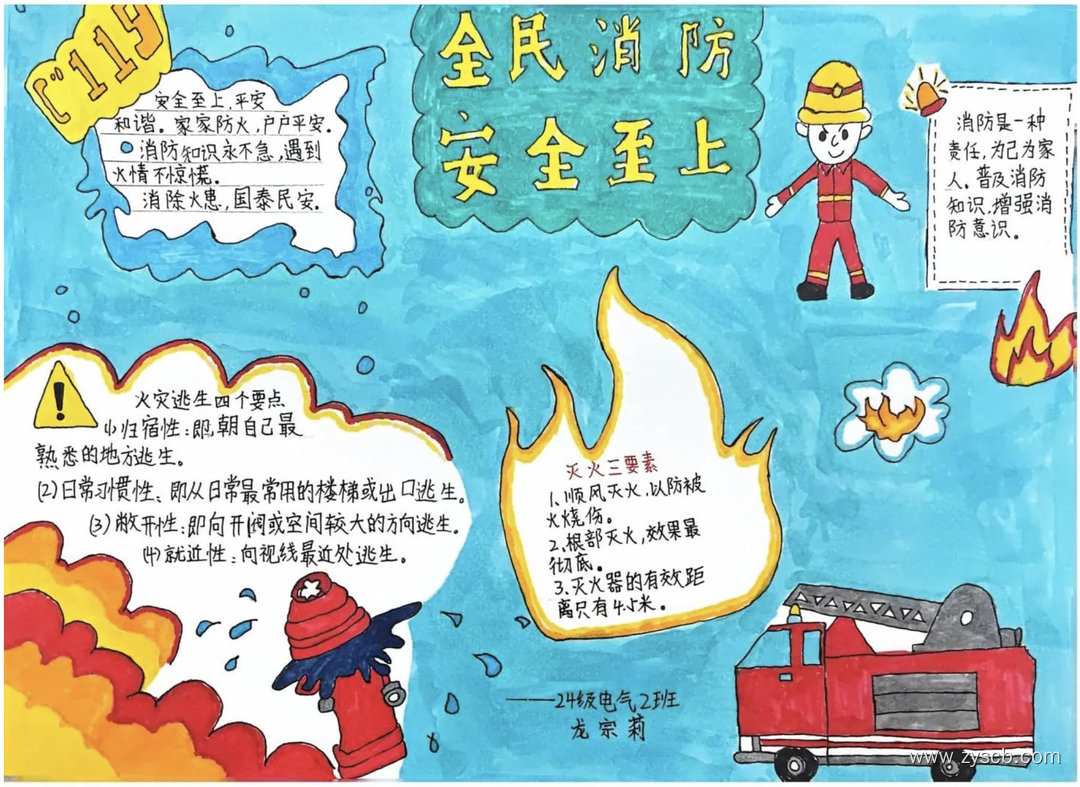 全民消防
安全至上
119
安全至上,平安
和谐。家家防火,户户平安。
消防知识永不急,遇到
火情不惊慌。
消除火患,国泰民安。
消防是一种
责任,为己为家
人。普及消防
知识,增强消
防意识。
火灾逃生四个要点
(1)归宿性:即朝自己最
熟悉的地方逃生。
(2)日常习惯性:即从日常最常用的楼梯或出口逃生。
(3)敞开性:即向开阔或空间较大的方向逃生。
(4)就近性:向视线最近处逃生。
灭火三要素
1、顺风灭火,以防被
火烧伤。
2、根部灭火,效果最
彻底。
3、灭火器的有效距
离只有4.5米。
——24级电气2班
龙宗莉
www.zyscb.com